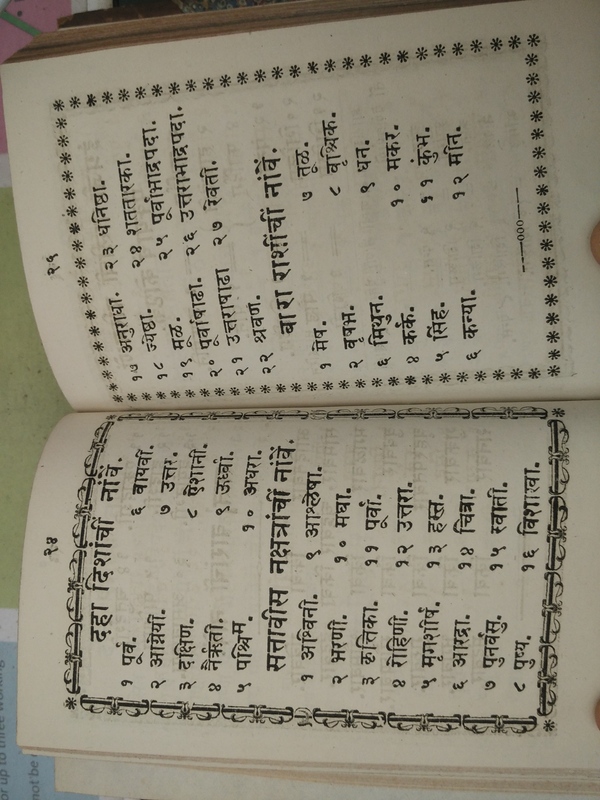 २४
दहा दिशांचीं नांवें.
१ पूर्व. ६ वायवी.
२ आग्नेयी. ७ उत्तर.
३ दक्षिण. ८ ऐशानी.
४ नैर्ऋती. ९ ऊर्ध्वा.
५ पश्चिम. १० अधरा.
सत्तावीस नक्षत्रांचीं नांवें.
१ अश्विनी. ९ आश्लेषा.
२ भरणी. १० मघा.
३ कृत्तिका. ११ पूर्वा.
४ रोहिणी. १२ उत्तरा.
५ मृगशीर्ष. १३ हस्त.
६ आरद्रा. १४ चित्रा.
७ पुनर्वसु. १५ स्वाती.
८ पुष्य. १६ विशाखा.
२५
१७ अनुराधा. २३ धनिष्ठा.
१८ ज्येष्ठा. २४ शततारका.
१९ मूळ. २५ पूर्वाभाद्रपदा.
२० पूर्वाषाढा. २६ उत्तराभाद्रपदा.
२१ उत्तराषाढा २७ रेवती.
२२ श्रवण.
बारा राशींचीं नांवें.
१ मेष. ७ तूळ.
२ वृषभ. ८ वृश्चिक.
६ मिथुन. ९ धन.
४ कर्क. १० मकर.
५ सिंह. ११ कुंभ.
६ कन्या. १२ मीन.
———०००———
or up to three working
not be